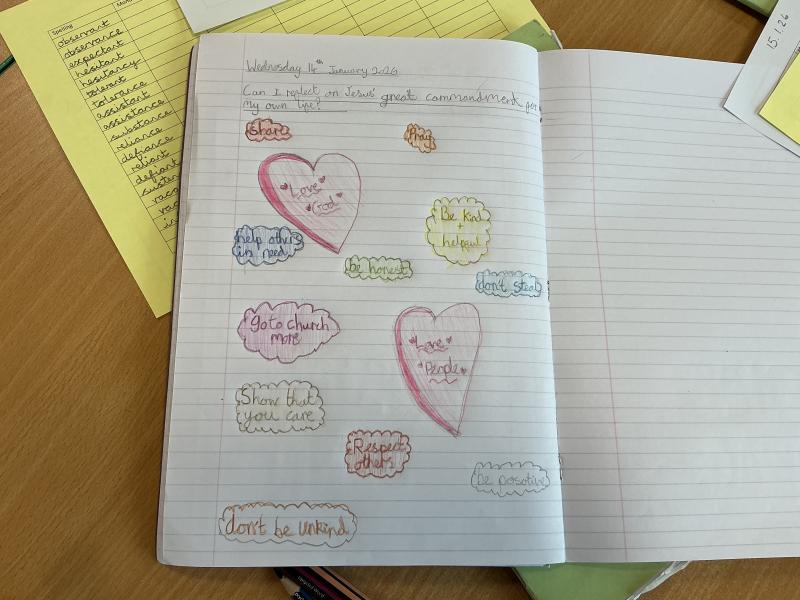 Spelling
observant
observance
expectant
hesitant
hesitancy
tolerant
tolerance
assistant
assistance
substance
reliance
defiance
reliant
defiant
15.1.26
Wednesday 14th January 2026
Can I reflect on Jesus' great commandment for
my own life?
share
Pray
Love
God
Be kind
+
helpful
help others
in need
be honest
don't steal
go to church
more
Love
People
Show that
you care
Respect
others
be posotive
don't be unkind